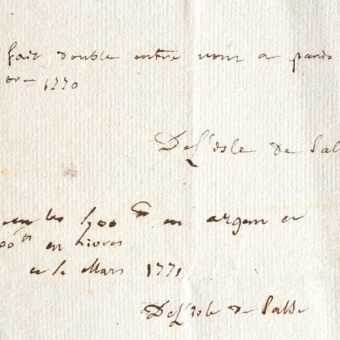 fait double entre nous a paris
bre 1770
De l'isle de Sal
les 600 tt en argen et
00 tt en livres
ce 1e Mars 1771
De l'isle de Salle